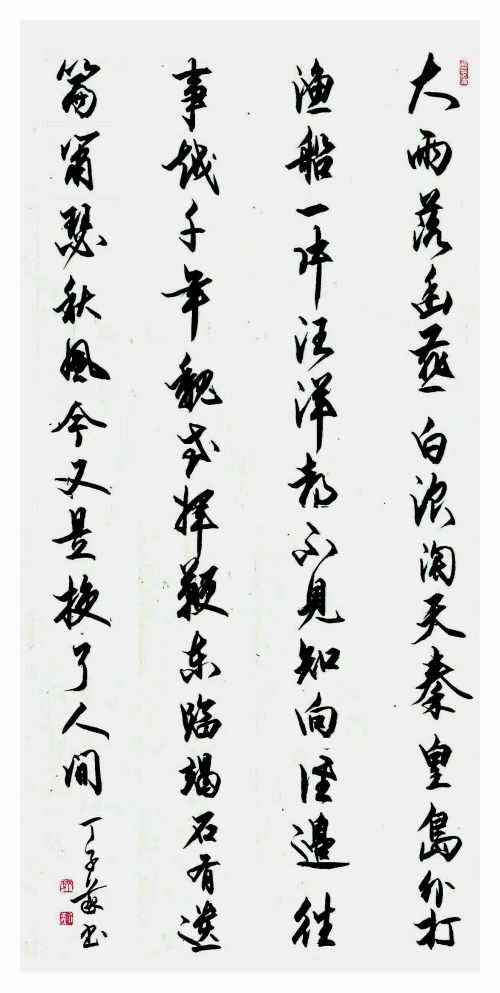 大雨落幽燕白浪淘天秦皇島外打
渔船一片汪洋都不見知向誰邉往
事越千年魏武揮鞭东臨竭石有遗
篇萧瑟秋風今又是换了人間
丁子书